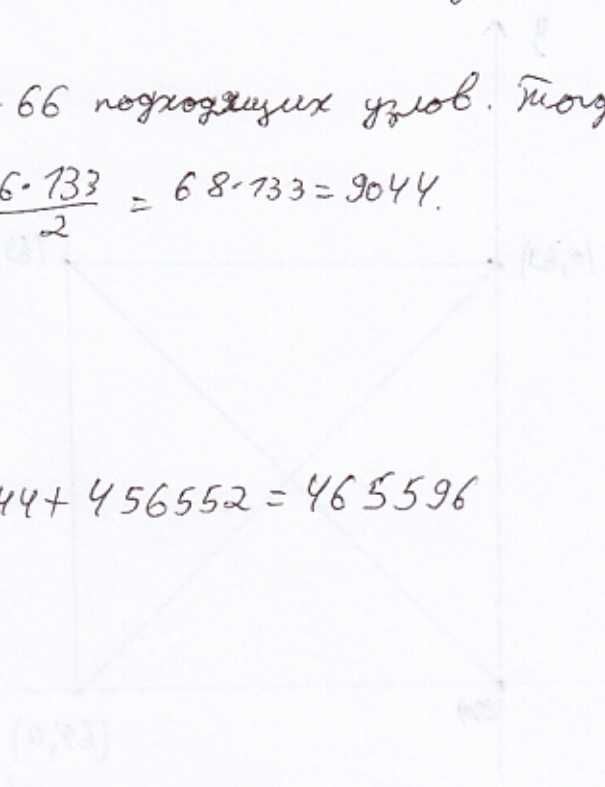 - 66 подходящих узлов. Тогд
6·133/2 = 68·133=9044.
44+456552=465596
(0,69)
(65,0)